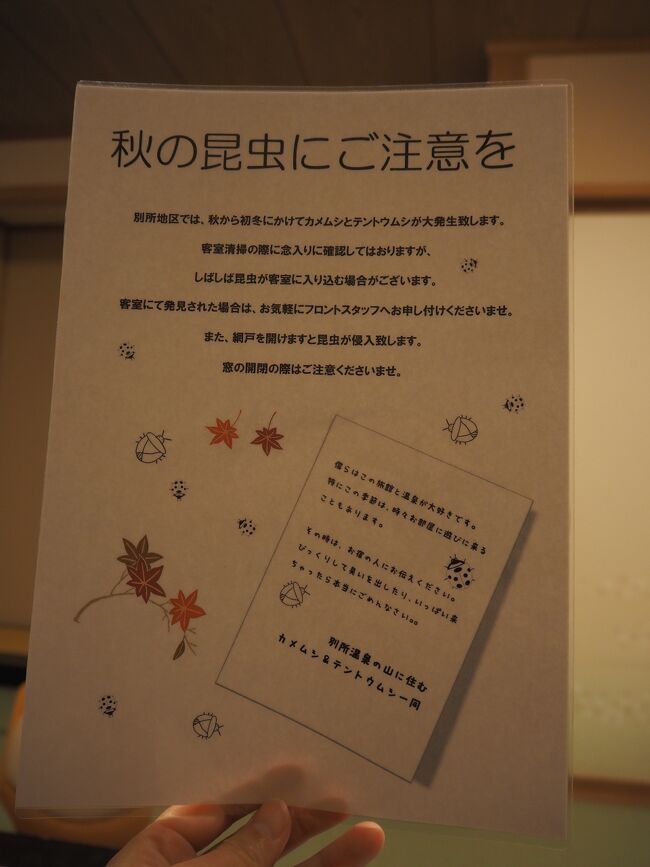 秋の昆虫にご注意を
別所地区では、秋から初冬にかけてカメムシとテントウムシが大発生致します。
客室清掃の際に念入りに確認してはおりますが、
しばしば昆虫が客室に入り込む場合がございます。
客室にて発見された場合は、お気軽にフロントスタッフへお申し付けくださいませ。
また、網戸を開けますと昆虫が侵入致します。
窓の開閉の際はご注意くださいませ。
僕らはこの旅館と温泉が大好きです。
特にこの季節は、時々お部屋に遊びに来る
こともあります。
その時は、お宿の人にお伝えください。
びっくりして臭いを出したり、いっぱい来
ちゃったら本当にごめんなさい。。
別所温泉の山に住む
カメムシ＆テントウムシ一同